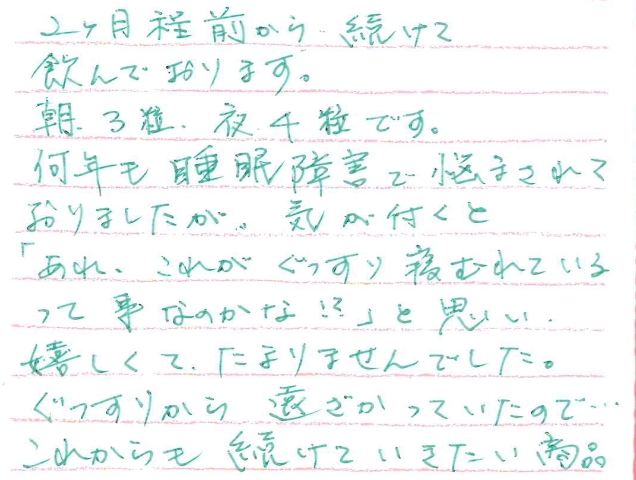 2ヶ月程前から続けて
飲んでおります。
朝3粒、夜4粒です。
何年も睡眠障害で悩まされて
おりましたが、気が付くと
「あれ、これがぐっすり寝むれている
って事なのかな!?」と思い、
嬉しくて、たまりませんでした。
ぐっすりから遠ざかっていたので…
これからも続けていきたい商品